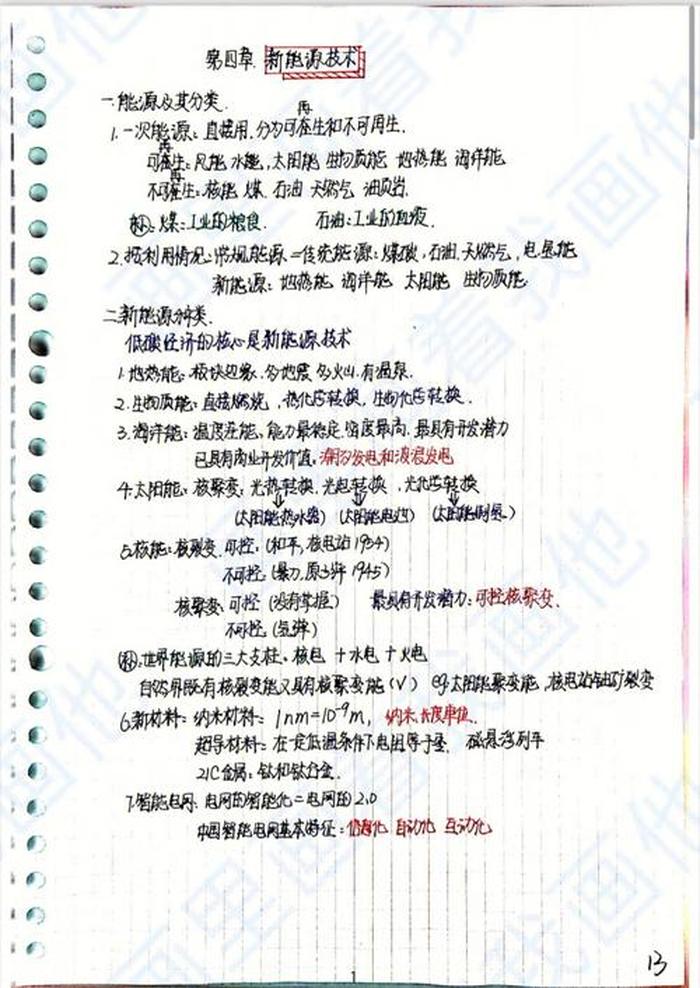 第四章. 新能源技术
一.能源及其分类.
再
1.一次能源: 直接用. 分为可在生和不可再生.
再
可在生: 风能 水能, 太阳能 生物质能 地热能 海洋能
再
不可在生: 核能 煤. 石油 天然气 油页岩.
补: 煤: 工业的粮食. 石油: 工业的血液.
2.按利用情况: 常规能源 = 传统能源: 煤碳, 石油. 天然气, 电能
新能源: 地热能 海洋能 太阳能 生物质能.
二.新能源分类.
低碳经济的核心是新能源技术
1.地热能: 板块边缘. 多地震 多火山. 有温泉.
2.生物质能: 直接燃烧, 热化学转换, 生物化学转换.
3.海洋能: 温度差能, 能力最稳定. 密度最高. 最具有开发潜力
已具有商业开发价值: 潮汐发电和波浪发电
4.太阳能: 核聚变: 光热转换. 光电转换, 光化学转换
(太阳能热水器) (太阳能电池) (太阳能制氢)
5.核能: 核裂变. 可控: (和平, 核电站 1954)
不可控: (暴力, 原子弹 1945)
核聚变: 可控 (没有掌握) 最具有开发潜力: 可控核聚变.
不可控. (氢弹)
补: 世界能源的三大支柱. 核电 + 水电 + 火电
自然界既有核裂变能又具有核聚变能 (√) eg 太阳能聚变能, 核电站铀矿裂变
6.新材料: 纳米材料: 1nm=10⁻⁹m, 纳米. 长度单位.
超导材料: 在一定低温条件下电阻等于零. 磁悬浮列车
21C金属: 钛和钛合金.
7.智能电网: 电网的智能化 = 电网的2.0
中国智能电网基本特征: 信息化 自动化 互动化
1
13